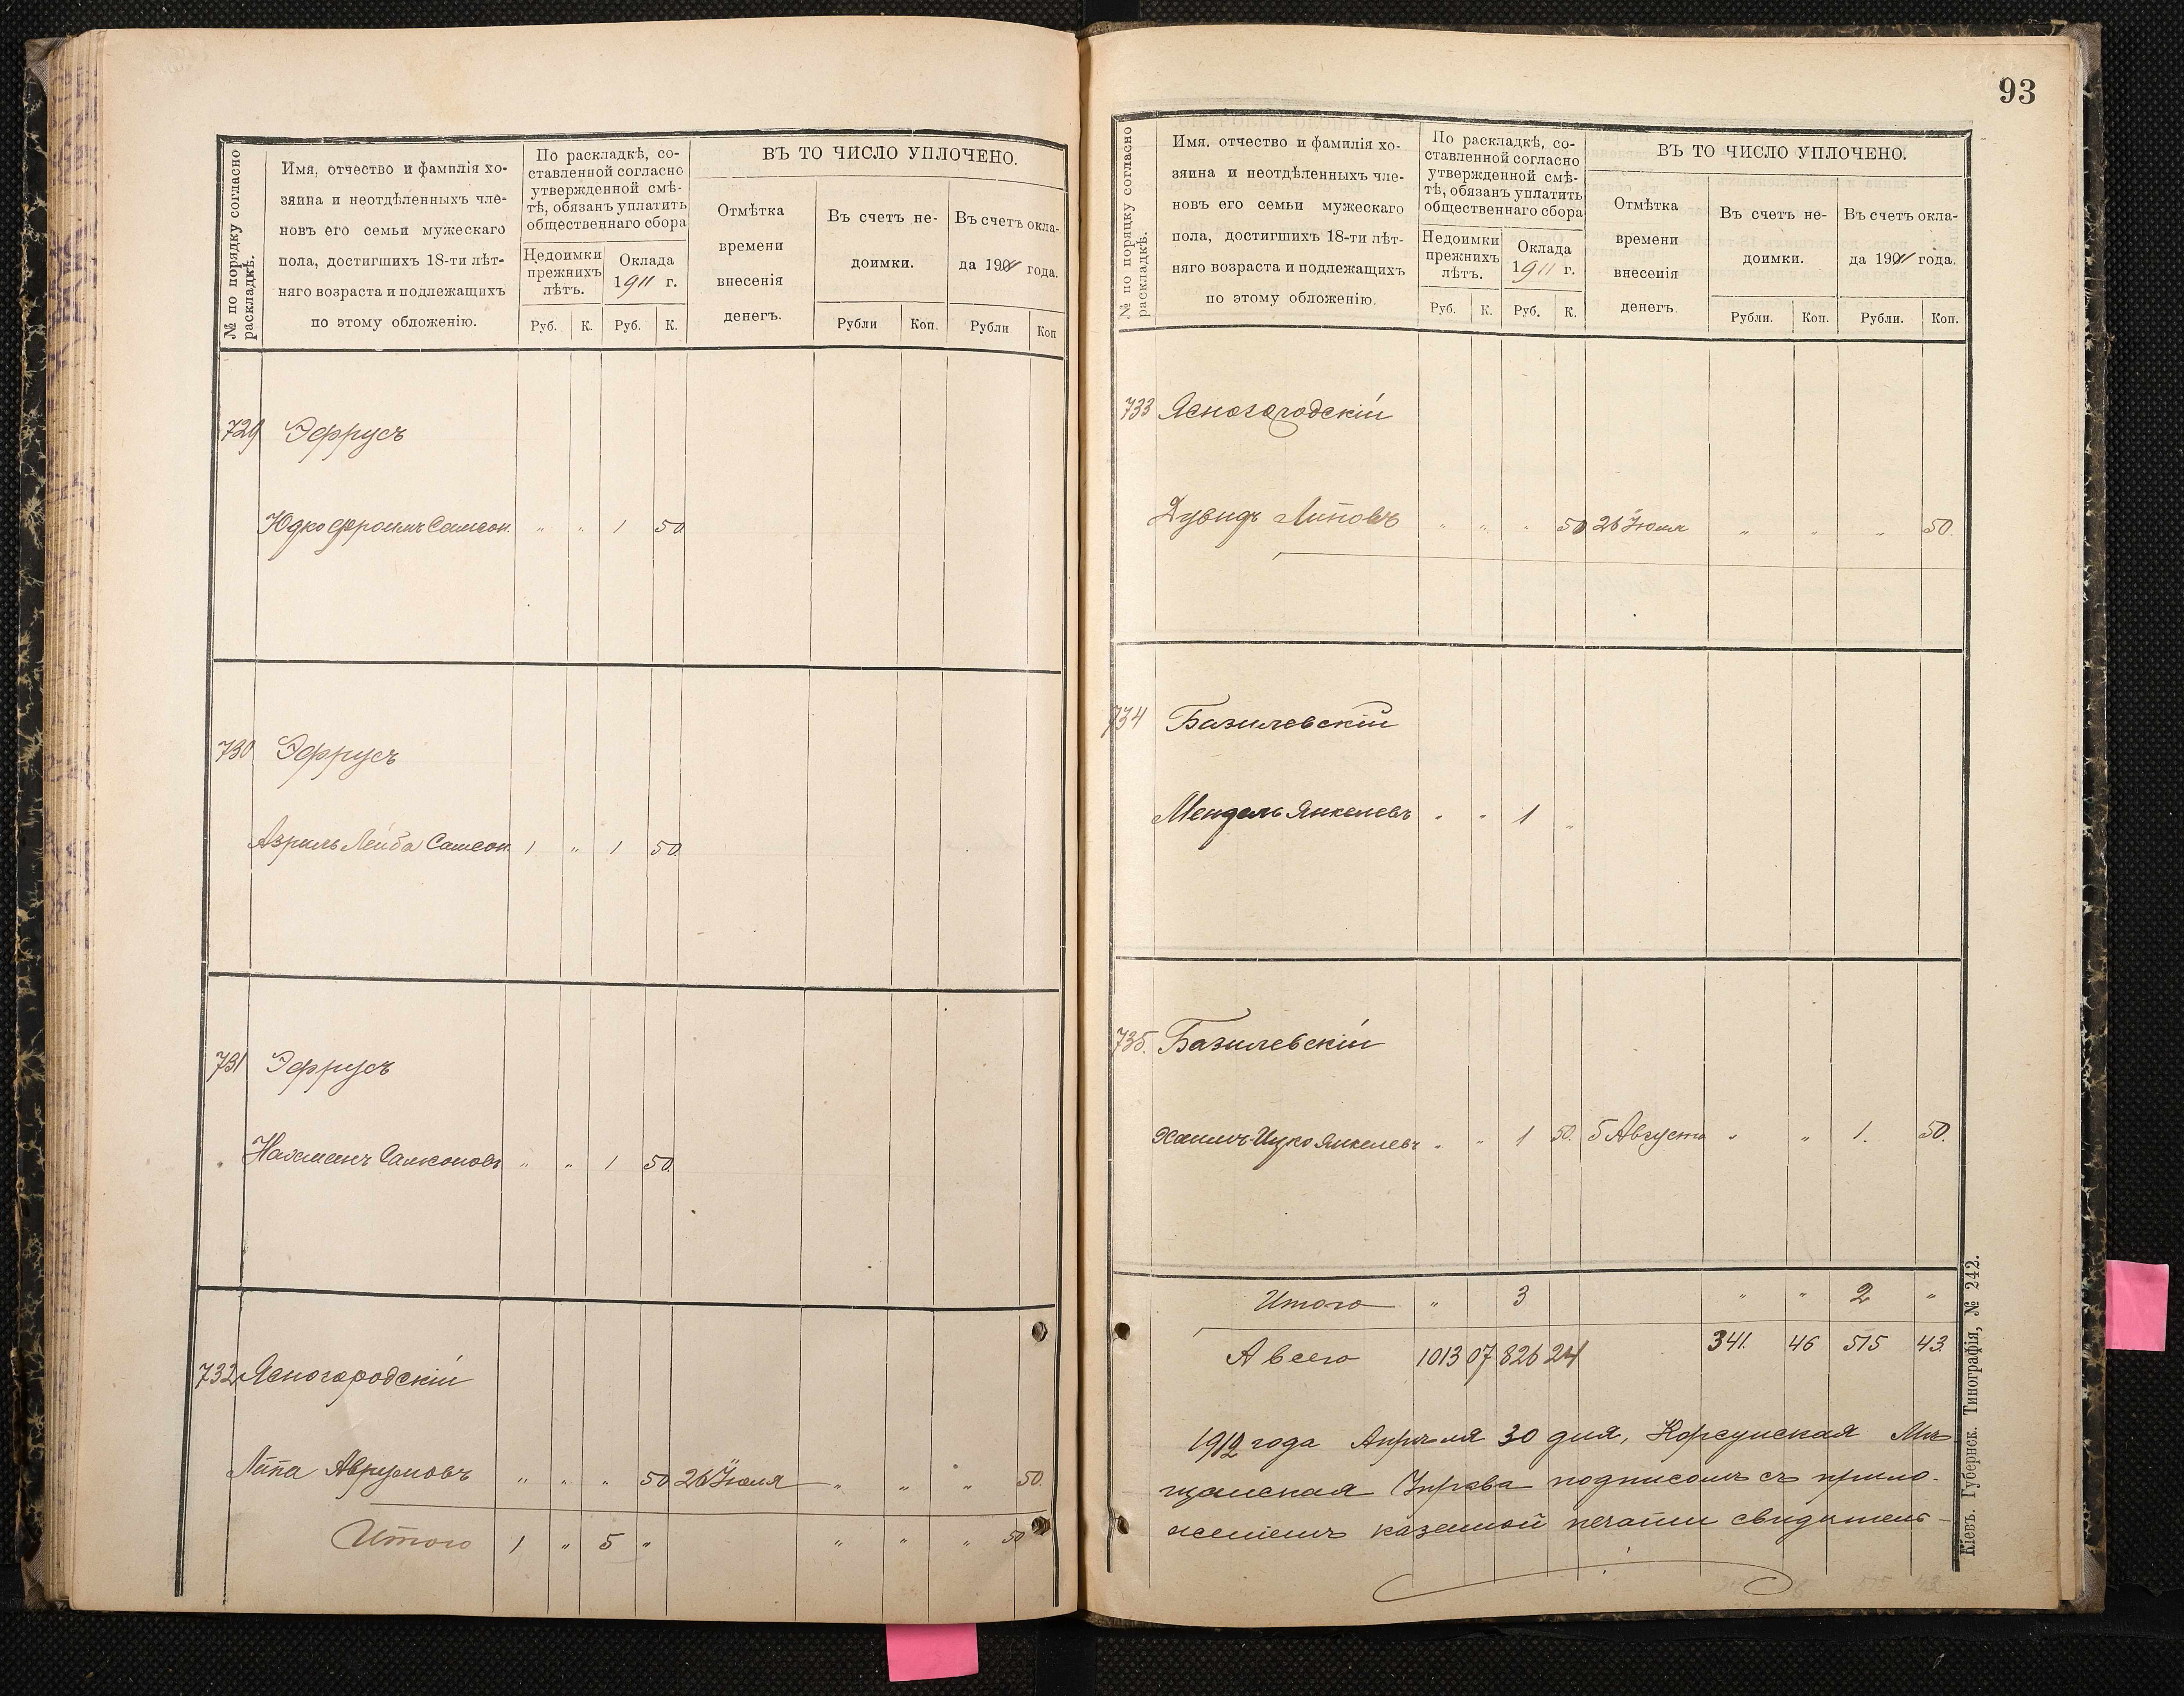 № по порядку согласно
раскладкѣ.
Имя, отчество и фамилія хо-
зяина и неотдѣленныхъ чле-
новъ его семьи мужескаго
пола, достигшихъ 18-ти лѣт-
няго возраста и подлежащихъ
по этому обложенію.
По раскладкѣ, со-
ставленной согласно
утвержденной смѣ-
тѣ, обязанъ уплатить
общественнаго сбора
Недоимки
прежнихъ
лѣтъ.
Оклада
1911 г.
Руб. К. Руб. К.
ВЪ ТО ЧИСЛО УПЛОЧЕНО.
Отмѣтка
времени
внесенія
денегъ.
Въ счетъ не-
доимки.
Въ счетъ окла-
да 1911 года.
Рубли Коп. Рубли Коп
729 Эфрусъ
Юдко Фроимъ Самсон. " " 1 50
730 Эфрусъ
Азриль Лейба Самсон. 1 " 1 50
731 Эфрусъ
Нахманъ Самсоновъ " " 1 50
732 Ясногородскій
Липа Аврумовъ " " " 50 26 Июля " " " 50.
Итого 1 " 5 " " " " 50
93
№ по порядку согласно
раскладкѣ.
Имя, отчество и фамилія хо-
зяина и неотдѣленныхъ чле-
новъ его семьи мужескаго
пола, достигшихъ 18-ти лѣт-
няго возраста и подлежащихъ
по этому обложенію.
По раскладкѣ, со-
ставленной согласно
утвержденной смѣ-
тѣ, обязанъ уплатить
общественнаго сбора
Недоимки
прежнихъ
лѣтъ.
Оклада
1911 г.
Руб. К. Руб. К.
ВЪ ТО ЧИСЛО УПЛОЧЕНО.
Отмѣтка
времени
внесенія
денегъ.
Въ счетъ не-
доимки.
Въ счетъ окла-
да 1911 года.
Рубли. Коп. Рубли. Коп.
733 Ясногородскій
Дувидъ Липовъ " " " 50 26 Июля " " " 50.
734 Базилевскій
Мендель Янкелевъ " " 1 "
735. Базилевскій
Хаимъ-Ицко Янкелевъ " " 1 50. 5 Августа " " 1. 50.
Итого " 3 " " 2 "
А всего 1013 07 826 24 341. 46 515 43.
1912 года Апрѣля 30 дня, Корсунская Мѣ-
щанская Управа подписомъ съ прило-
женіемъ казенной печати свидѣтель-
Кіевъ. Губернск. Типографія, № 242.